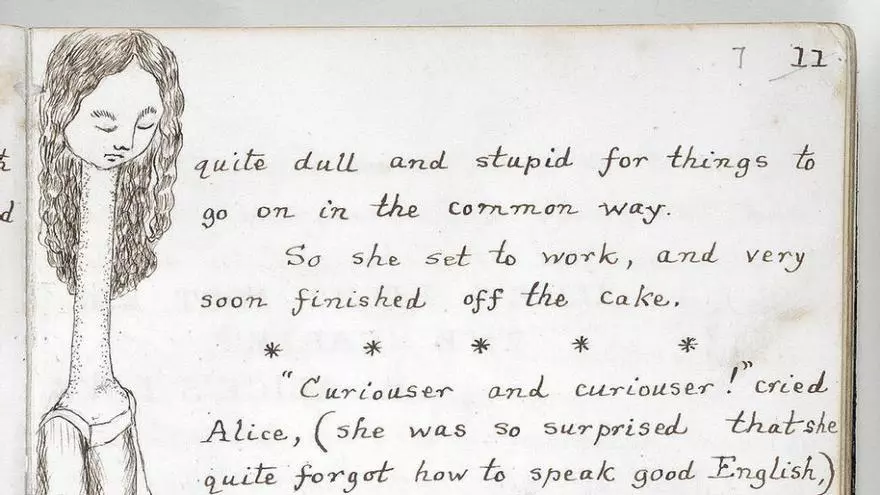 7 11
quite dull and stupid for things to
go on in the common way.
So she set to work, and very
soon finished off the cake.
* * * * *
"Curiouser and curiouser!" cried
Alice, (she was so surprised that she
quite forgot how to speak good English,)